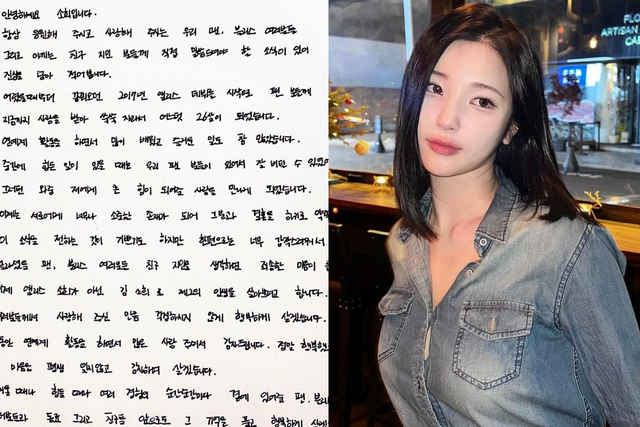 안녕하세요 소희입니다.
항상 응원해 주시고 사랑해 주시는 우리 팬, 블리스 여러분들
그리고 아끼는 친구 지인 분들께 직접 말씀드려야 할 소식이 있어
진심을 담아 적어봅니다.
꿈꿔오던 2017년 앨리스 데뷔를 시작으로 팬 분들께
지금까지 사랑을 받아 쑥쑥 자라서 어느덧 26살이 되었습니다.
연예계 활동을 하면서 많이 배웠고 즐거운 일도 참 많았습니다.
중간에 힘든 일이 있을 때에는 우리 팬 분들이 있어서 잘 버틸 수 있었
그러던 와중 저에게 큰 힘이 되어주는 사람을 만나게 되었습니다.
이제는 서로에게 너무나 소중한 존재가 되어 그분과 결혼을 하기로 약
이 소식을 전하는 것이 기쁘기도 하지만 한편으로는 너무 갑작스러워서
팬, 블리스 여러분들 친구 지인들 생각하면 죄송한 마음이
앨리스 소희가 아닌 김소희로 제2의 인생을 살아보려고 합니다.
사랑해 주신 만큼 걱정하시지 않게 행복하게 살겠습니다.
연예계 활동을 하면서 많은 사랑 주셔서 감사드립니다. 정말 행복했
마음은 평생 잊지않고 감사하며 살겠습니다.
때나 힘들 때나 여러 경험의 순간순간마다 곁에 있어준 팬, 블리
동료 그리고 친구들 앞으로도 그 기억을 품고 행복하게
FLO
ARTISAN
CAF